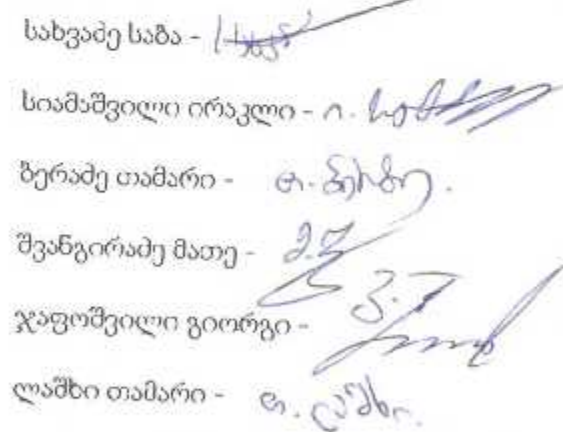 სახვაძე საბა -
სიამაშვილი ირაკლი - ი.
ბერაძე თამარი - თ. ბერაძე.
შვანგირაძე მათე - მ.შ
ჯაფოშვილი გიორგი -
ლაშხი თამარი - თ. ლაშხი.